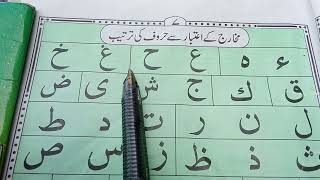 مخارج کے اعتبار سے حروف کی ترتیب
ء ہ ع ح غ خ
ق ك ج ش ی ض
ل ن ر ت د ط
ث ذ ظ ز س ص